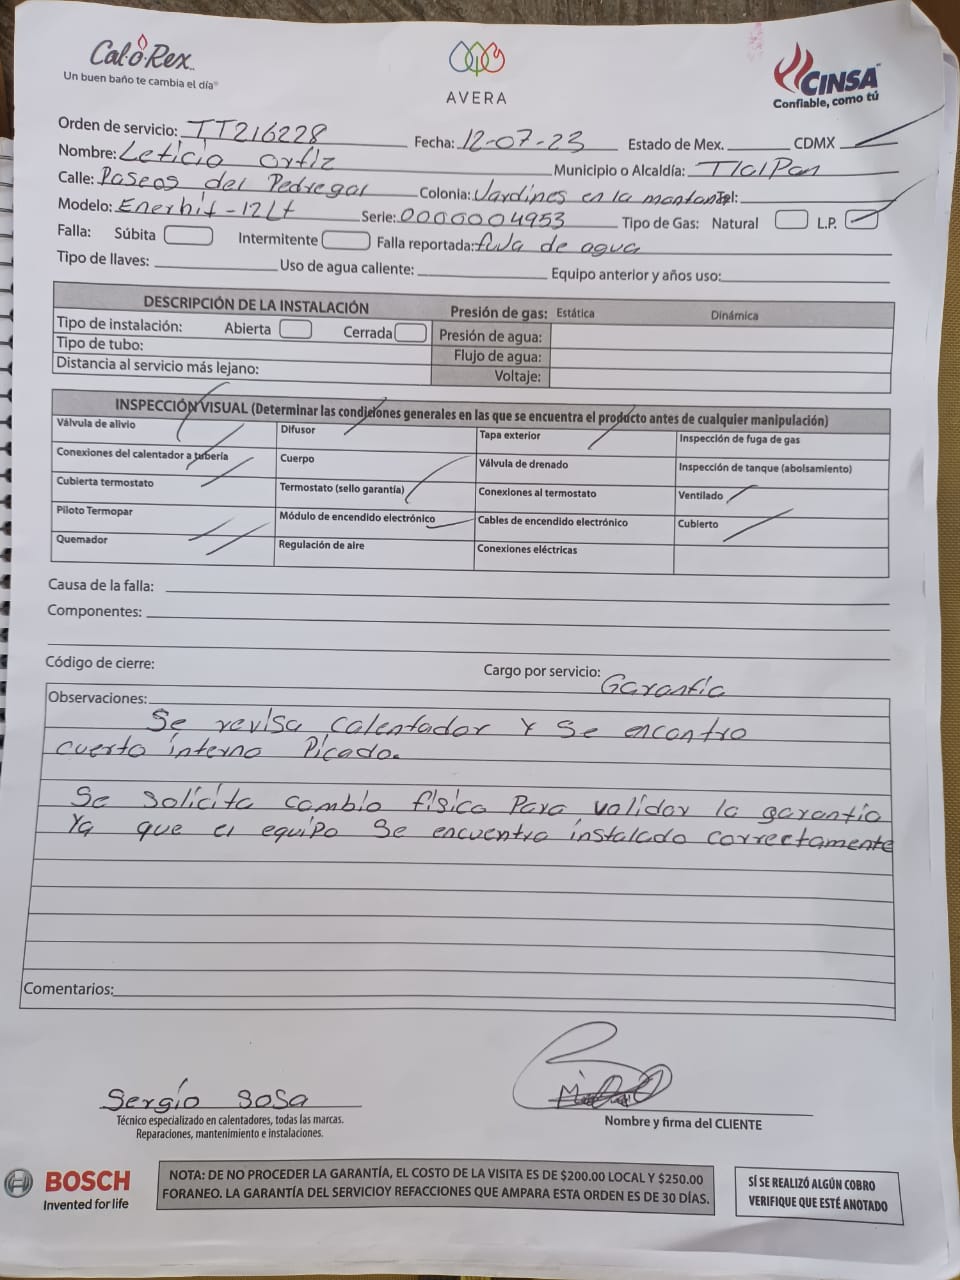 Cal-o-Rex
Un buen baño te cambia el día®
AVERA
CINSA
Confiable, como tú
Orden de servicio: TT216228 Fecha: 12-07-23 Estado de Mex. CDMX
Nombre: Leticia Ortiz Municipio o Alcaldía: TlalPan
Calle: Paseos del Pedregal Colonia: Jardines en la montaña Tel:
Modelo: Enerhit-12Lt Serie: 0000004953 Tipo de Gas: Natural L.P.
Falla: Súbita Intermitente Falla reportada: fuja de agua
Tipo de llaves: Uso de agua caliente: Equipo anterior y años uso:
DESCRIPCIÓN DE LA INSTALACIÓN Presión de gas: Estática Dinámica
Tipo de instalación: Abierta Cerrada Presión de agua:
Tipo de tubo: Flujo de agua:
Distancia al servicio más lejano: Voltaje:
INSPECCIÓN VISUAL (Determinar las condiciones generales en las que se encuentra el producto antes de cualquier manipulación)
Válvula de alivio Difusor Tapa exterior Inspección de fuga de gas
Conexiones del calentador a tubería Cuerpo Válvula de drenado Inspección de tanque (abolsamiento)
Cubierta termostato Termostato (sello garantía) Conexiones al termostato Ventilado
Piloto Termopar Módulo de encendido electrónico Cables de encendido electrónico Cubierto
Quemador Regulación de aire Conexiones eléctricas
Causa de la falla:
Componentes:
Código de cierre: Cargo por servicio: Garantía
Observaciones:
Se revisa calentador y se encontro
cuerto interno Picado.
Se solicita cambio físico Para validar la garantía
Ya que el equipo Se encuentra instalado correctamente
Comentarios:
Sergio Sosa
Técnico especializado en calentadores, todas las marcas.
Reparaciones, mantenimiento e instalaciones.
Nombre y firma del CLIENTE
BOSCH
Invented for life
NOTA: DE NO PROCEDER LA GARANTÍA, EL COSTO DE LA VISITA ES DE $200.00 LOCAL Y $250.00
FORANEO. LA GARANTÍA DEL SERVICIOY REFACCIONES QUE AMPARA ESTA ORDEN ES DE 30 DÍAS.
SÍ SE REALIZÓ ALGÚN COBRO
VERIFIQUE QUE ESTÉ ANOTADO